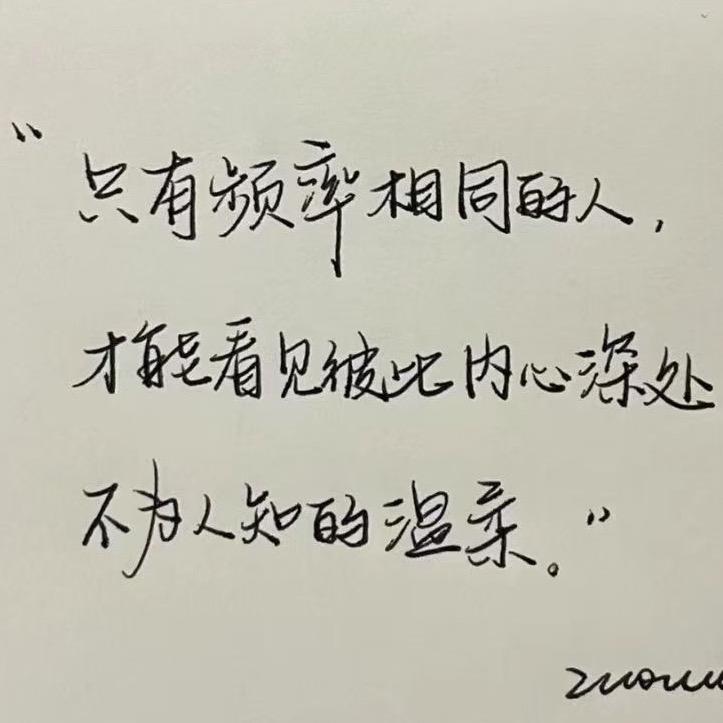 “只有频率相同的人，
才能看见彼此内心深处
不为人知的温柔。”